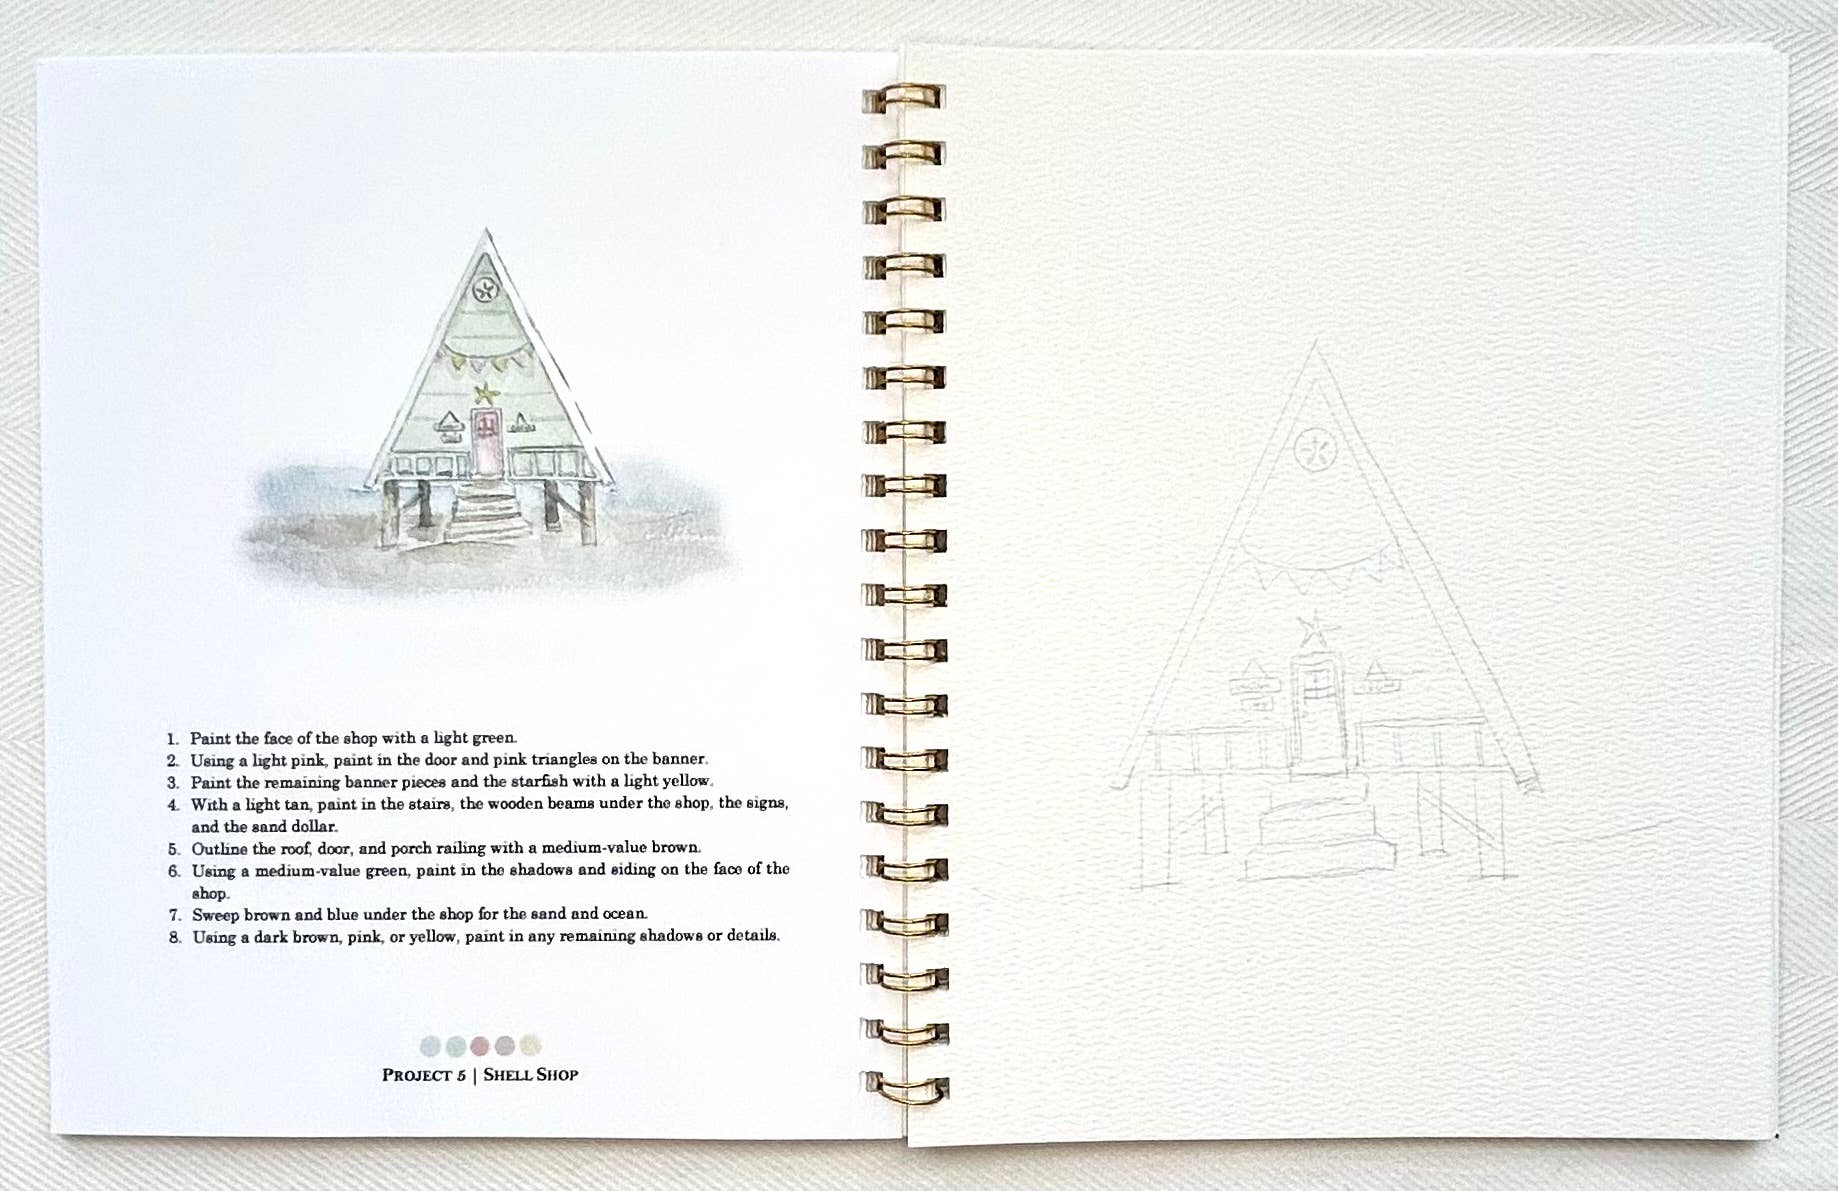 1. Paint the face of the shop with a light green.
2. Using a light pink, paint in the door and pink triangles on the banner.
3. Paint the remaining banner pieces and the starfish with a light yellow.
4. With a light tan, paint in the stairs, the wooden beams under the shop, the signs,
and the sand dollar.
5. Outline the roof, door, and porch railing with a medium-value brown.
6. Using a medium-value green, paint in the shadows and siding on the face of the
shop.
7. Sweep brown and blue under the shop for the sand and ocean.
8. Using a dark brown, pink, or yellow, paint in any remaining shadows or details.
PROJECT 5 | SHELL SHOP